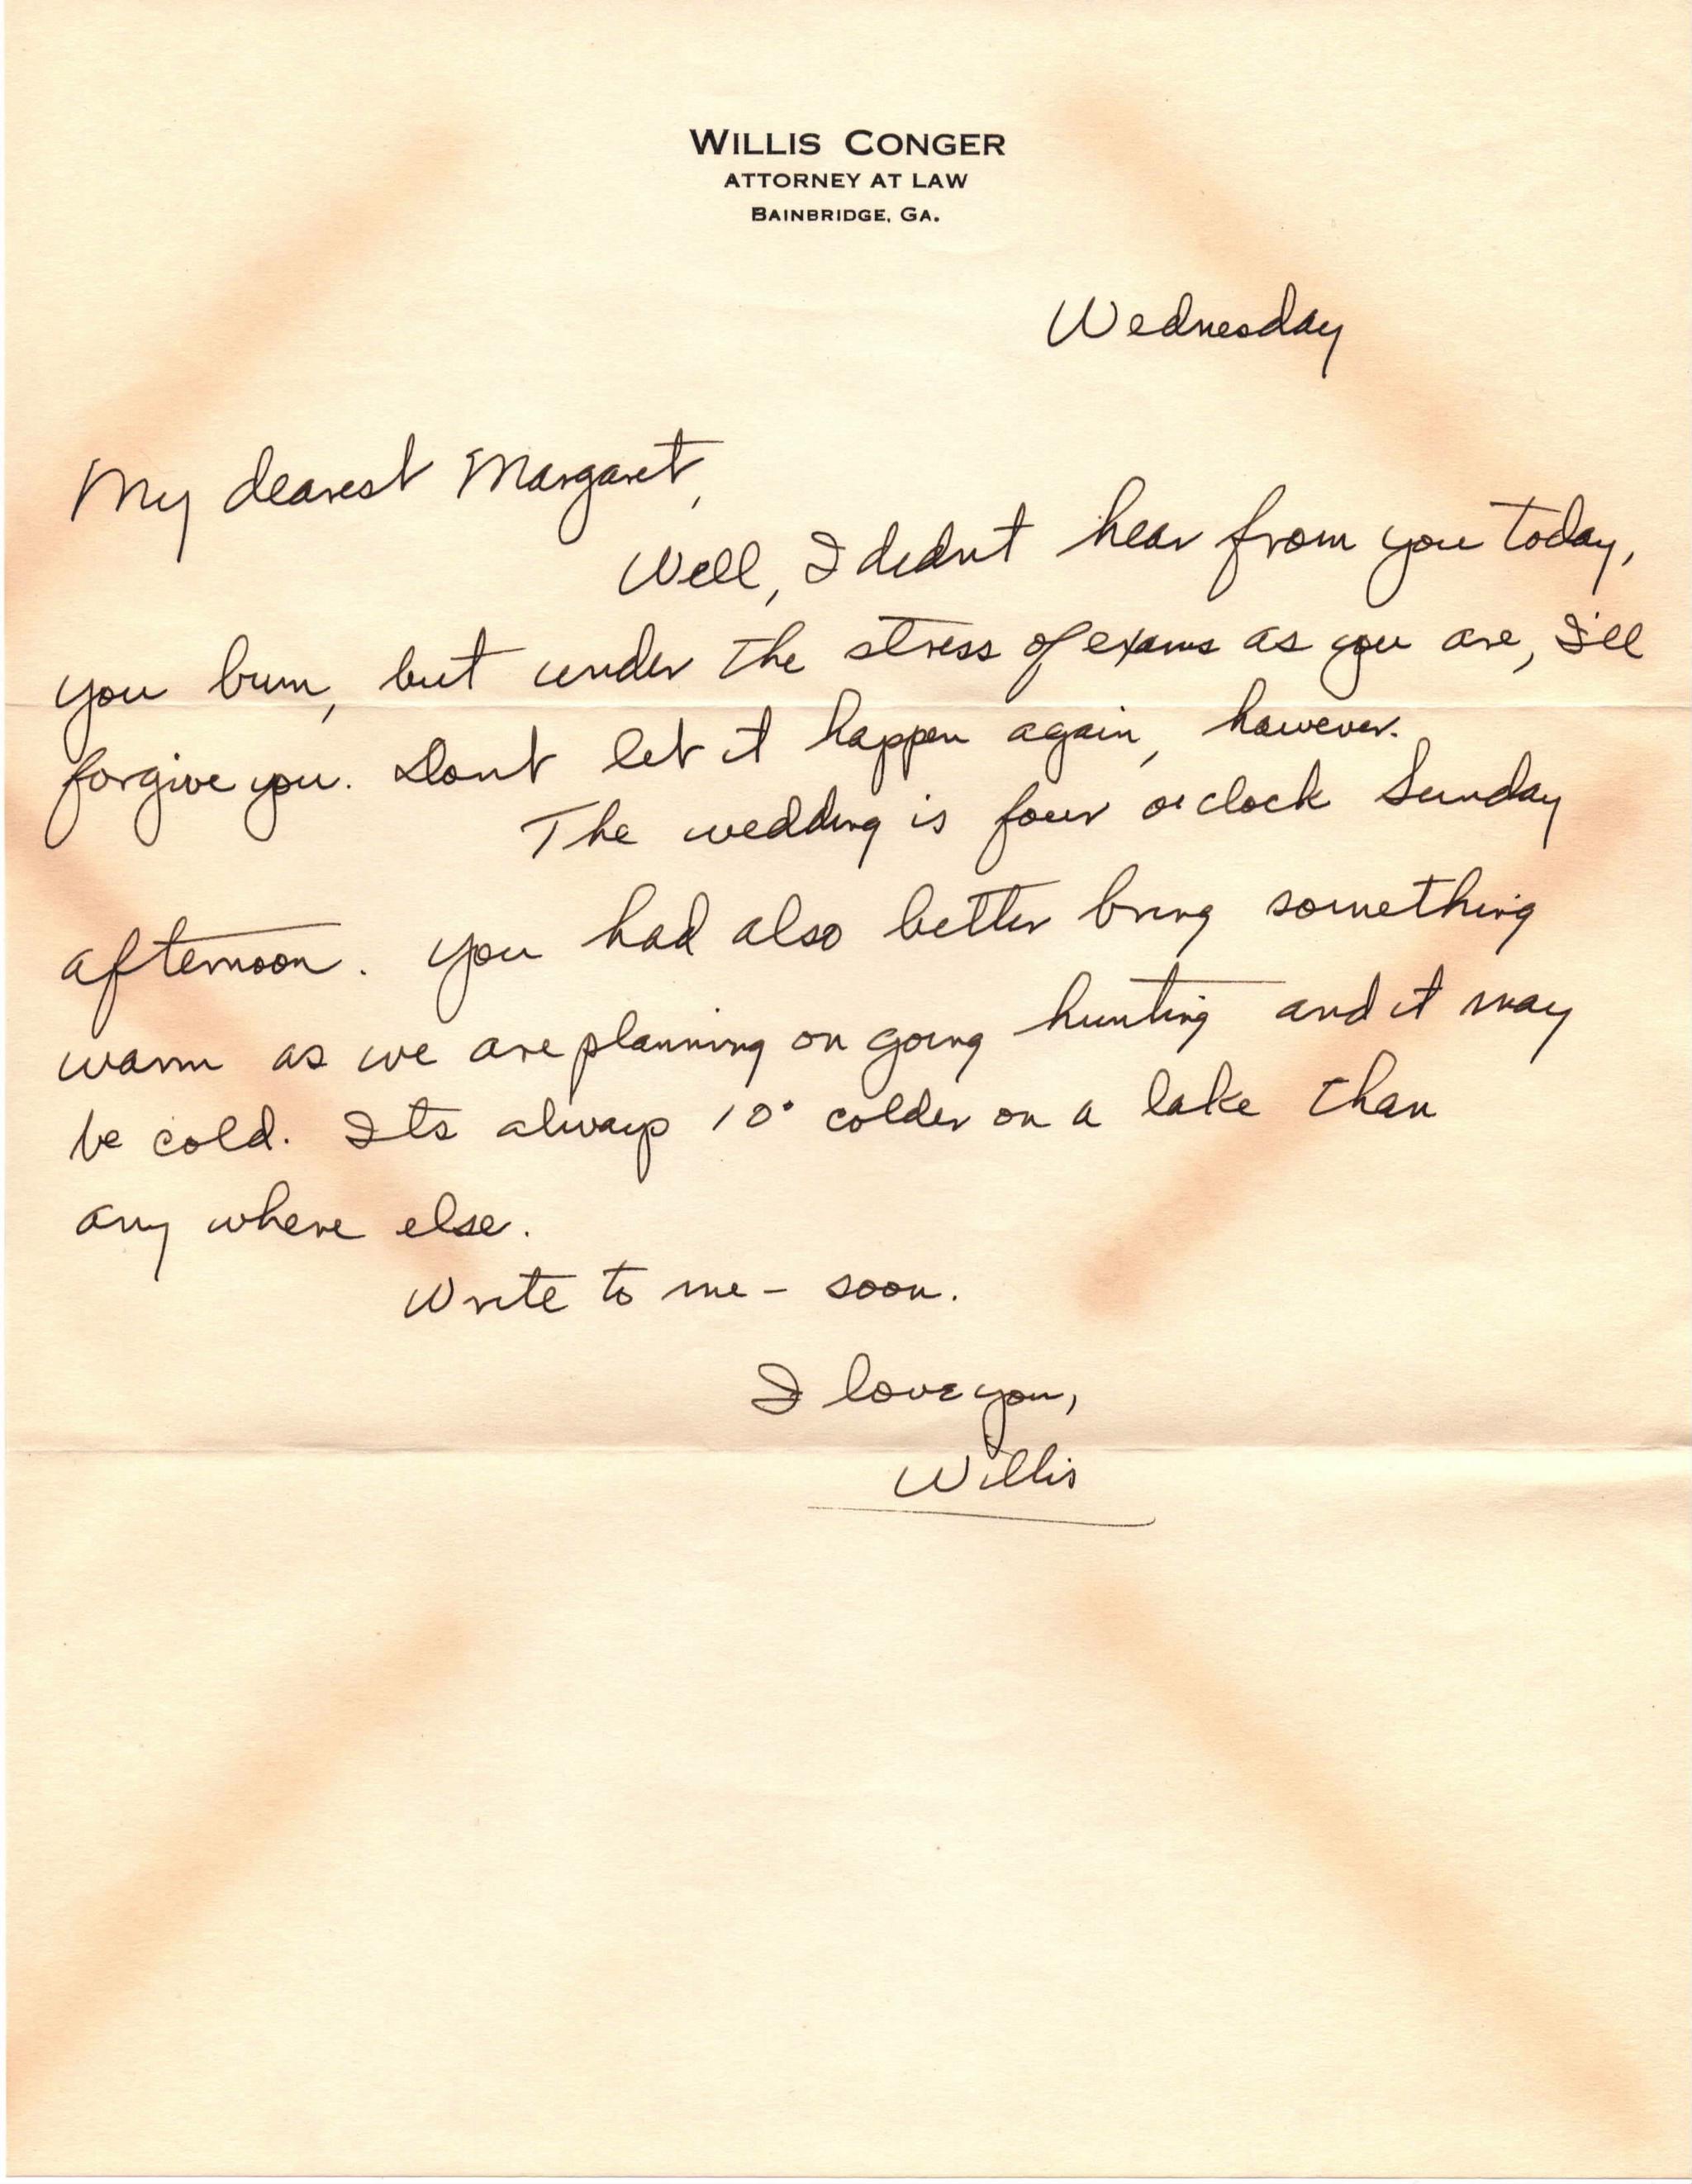 WILLIS CONGER
ATTORNEY AT LAW
BAINBRIDGE, GA.
Wednesday
My dearest Margaret,
Well, I didnt hear from you today,
you bum, but under the stress of exams as you are, I'll
forgive you. Dont let it happen again, however.
The wedding is four o'clock Sunday
afternoon. You had also better bring something
warm as we are planning on going hunting and it may
be cold. Its always 10° colder on a lake than
any where else.
Write to me - soon.
I love you,
Willis